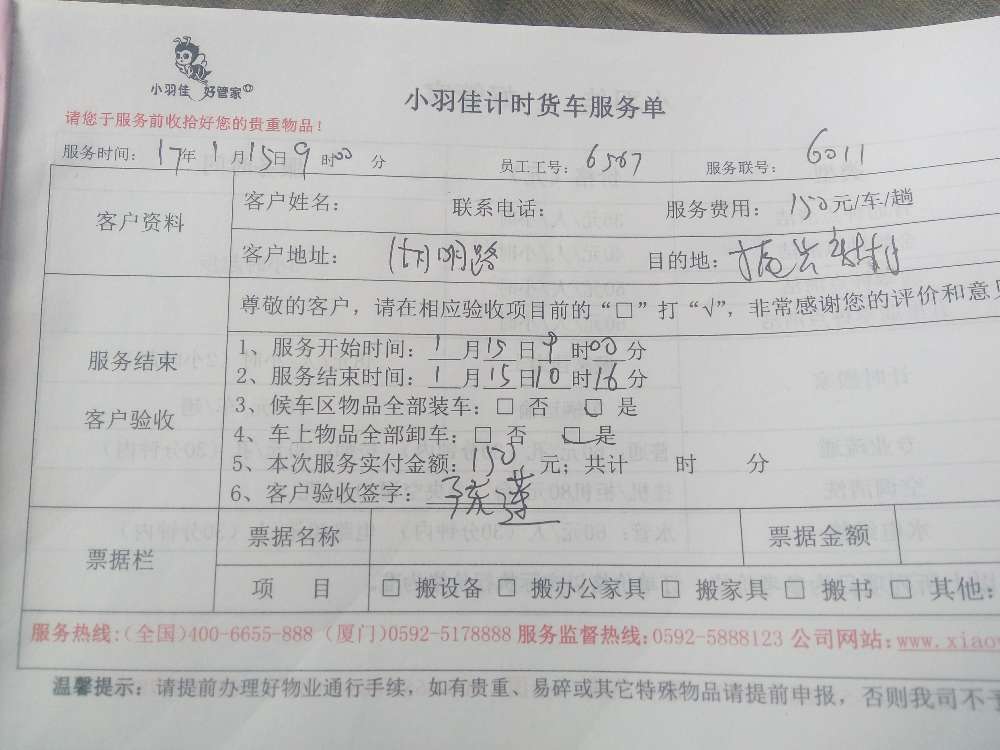 小羽佳 好管家
小羽佳计时货车服务单
请您于服务前收拾好您的贵重物品！
服务时间：17年1月15日9时00分 员工工号：6567 服务联号：6011
客户资料
客户姓名： 联系电话： 服务费用：150元/车/趟
客户地址：明路 目的地：
尊敬的客户，请在相应验收项目前的“□”打“√”，非常感谢您的评价和意见
服务结束
客户验收
1、服务开始时间：1月15日9时00分
2、服务结束时间：1月15日10时16分
3、候车区物品全部装车：□ 否 □ 是
4、车上物品全部卸车：□ 否 □ 是
5、本次服务实付金额：150元；共计 时 分
6、客户验收签字：
票据栏
票据名称 票据金额
项 目 □ 搬设备 □ 搬办公家具 □ 搬家具 □ 搬书 □ 其他：
服务热线：(全国)400-6655-888 (厦门)0592-5178888 服务监督热线：0592-5888123 公司网站：www.xiao
温馨提示：请提前办理好物业通行手续，如有贵重、易碎或其它特殊物品请提前申报，否则我司不予